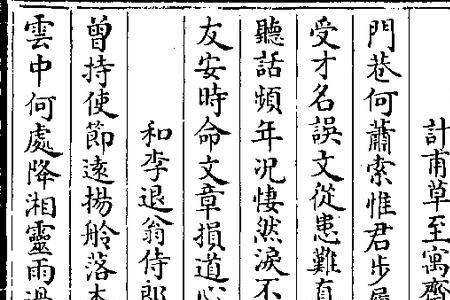 計甫草至寓齋
門巷何蕭索惟君步
受才名誤文從患難真
聽話頻年况悽然淚不
友安時命文章損道心
和李退翁侍郎
曾持使節遠揚舲落木
雲中何處降湘靈雨過